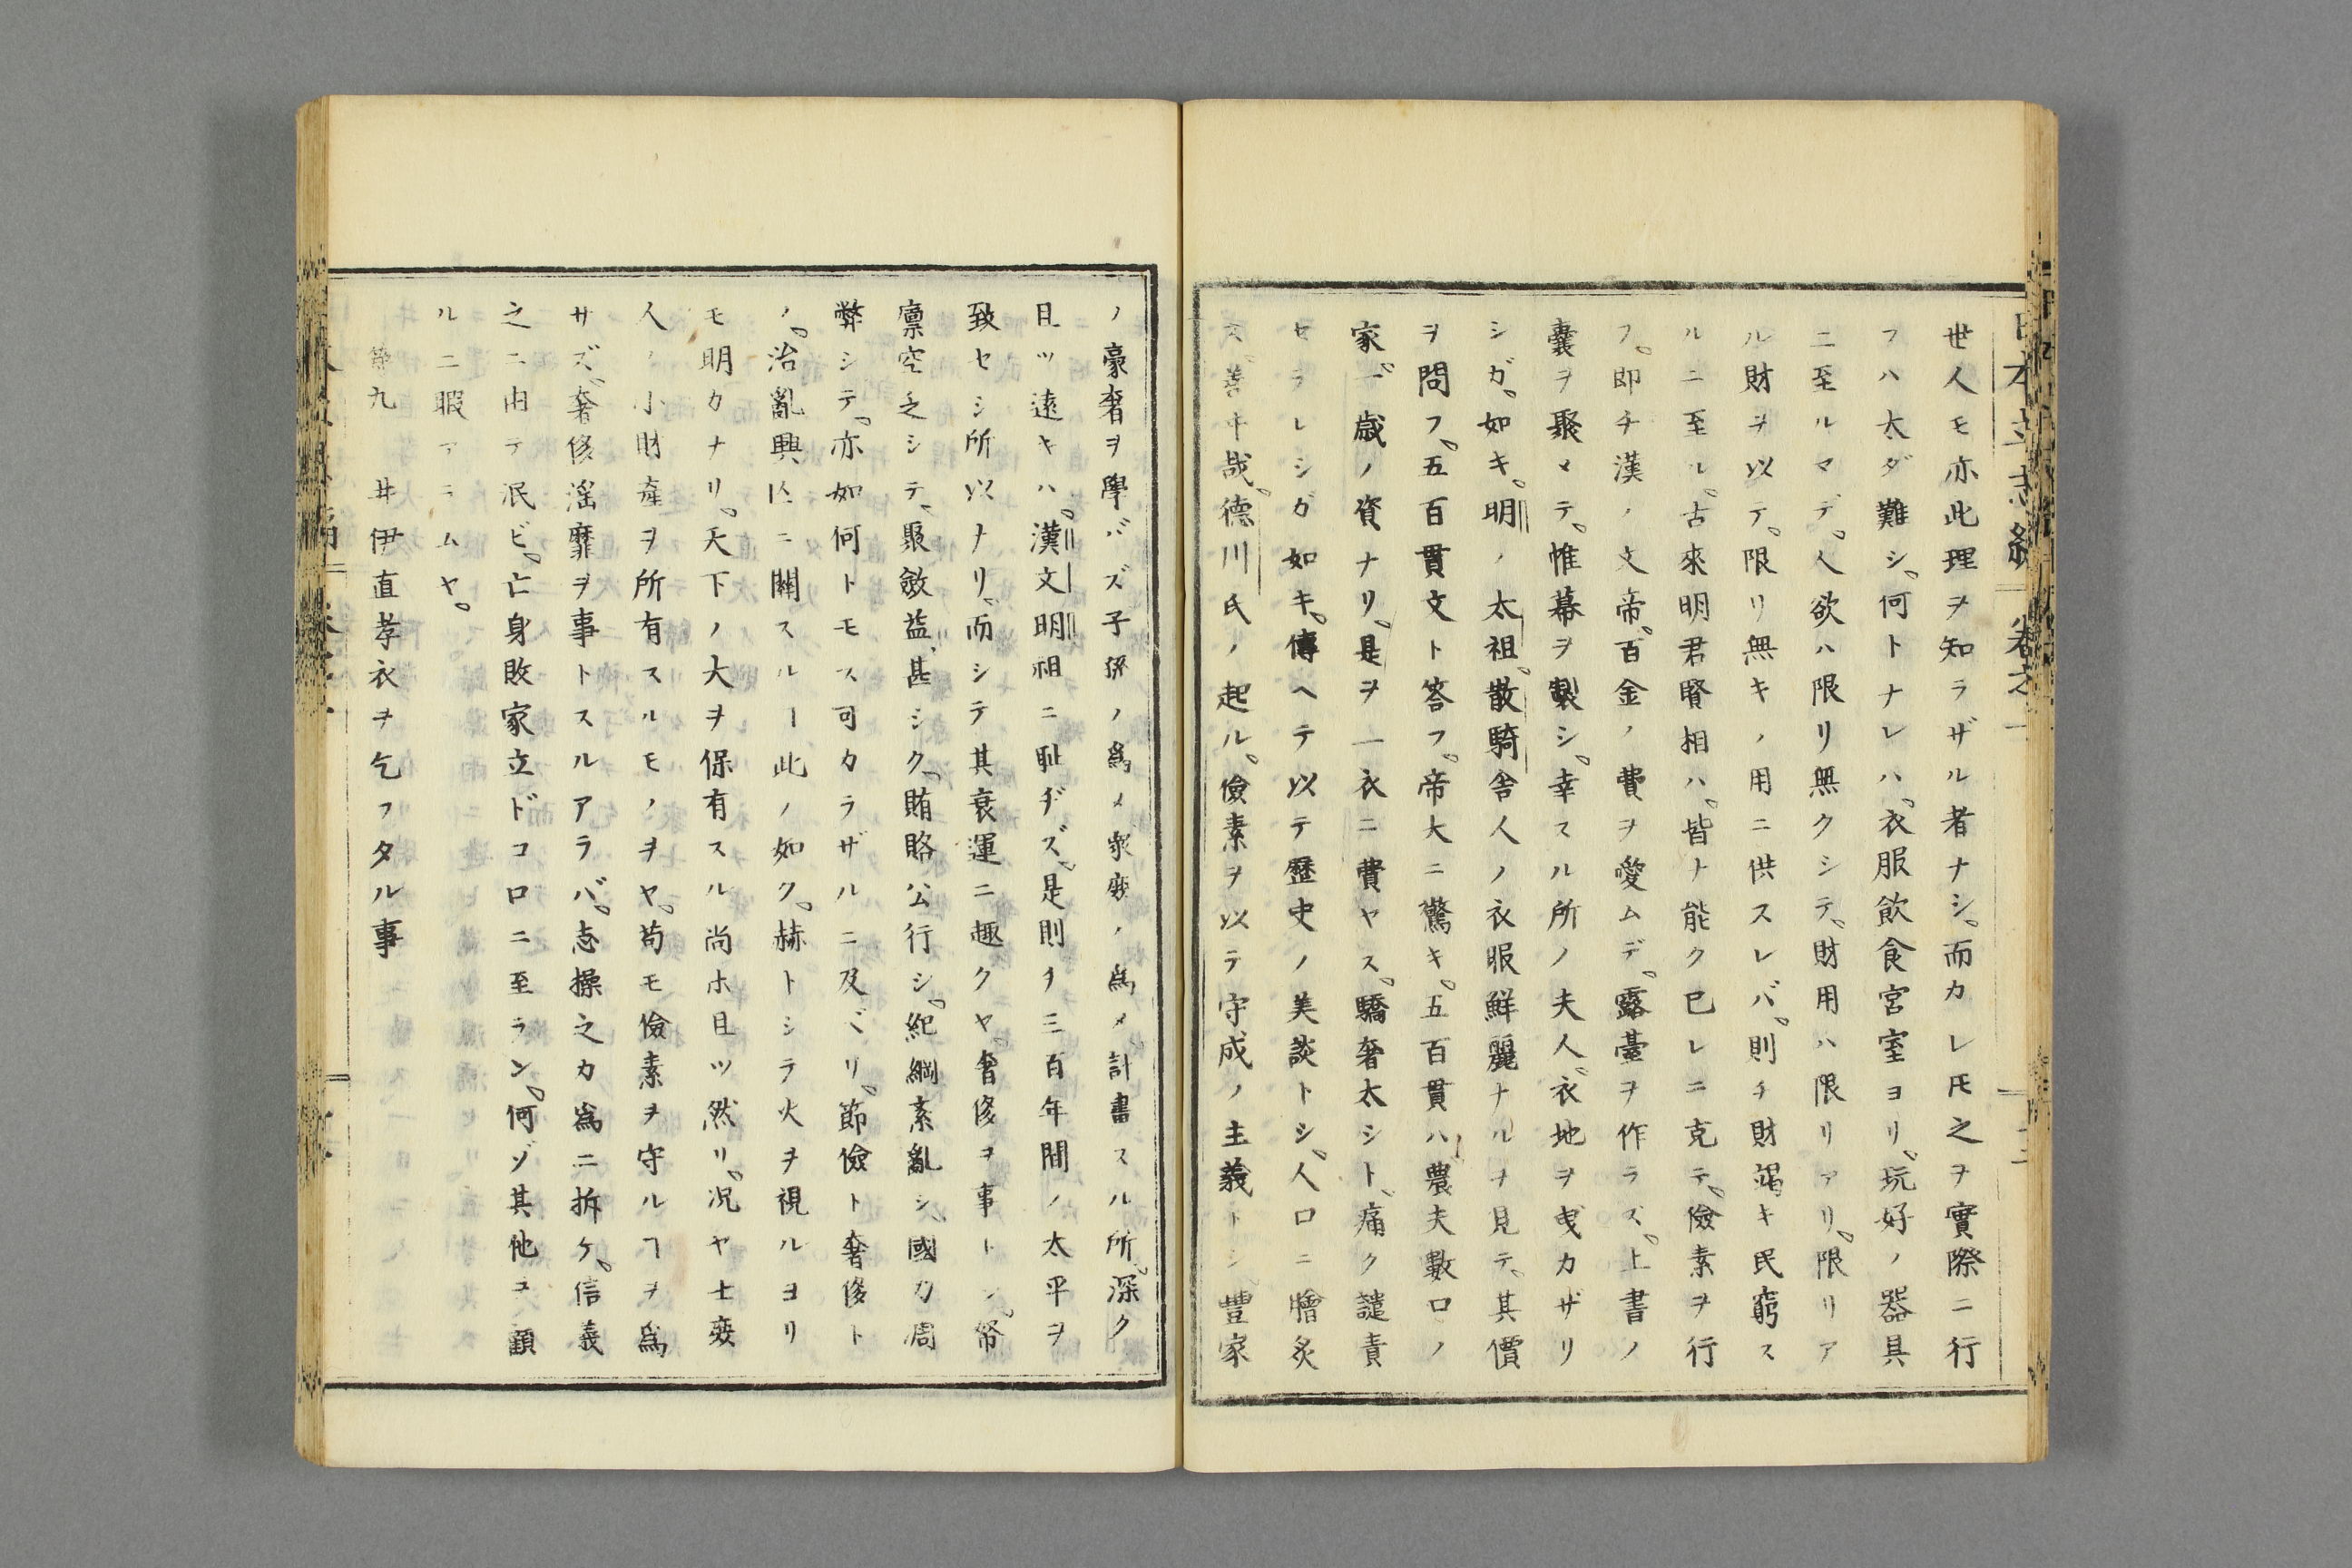 世人モ亦此理ヲ知ラザル者ナシ。而カレ𪜈之ヲ實際ニ行
フハ太ダ難シ。何トナレハ。衣服飲食宮室ヨリ。玩好ノ器具
ニ至ルマデ。人欲ハ限リ無クシテ。財用ハ限リアリ。限リア
ル財ヲ以テ。限リ無キノ用ニ供スレバ。則チ財竭キ民窮ス
ルニ至ル。古來明君賢相ハ。皆ナ能ク已レニ克テ。儉素ヲ行
フ。即チ漢ノ文帝。百金ノ費ヲ愛ムデ。露臺ヲ作ラズ。上書ノ
嚢ヲ聚メテ。帷幕ヲ製シ。幸スル所ノ夫人。衣地ヲ曳カザリ
シガ。如キ。明ノ太祖。散騎舍人ノ衣服鮮麗ナルヲ見テ。其價
ヲ問フ。五百貫文ト答フ。帝大ニ驚キ。五百貫ハ農夫數口ノ
家。一歳ノ資ナリ。是ヲ一衣ニ費ヤス。驕奢太シト。痛ク譴責
セラレシガ如キ。傳ヘテ以テ歷史ノ美談トシ。人口ニ膾炙
ス。善キ哉。德川氏ノ起ル。儉素ヲ以テ守成ノ主義トシ。豐家
ノ豪奢ヲ學バズ子孫ノ爲メ衆庶ノ爲メ計畫スル所。深ク
且ツ遠キハ。漢文明祖ニ耻ヂズ。是則チ三百年間ノ太平ヲ
致セシ所以ナリ。而シテ其衰運ニ趣クヤ。奢侈ヲ事トシ。帑
廩空乏シテ。聚斂益甚シク。賄賂公行シ。紀綱紊亂シ。國力凋
弊シテ。亦如何トモス可カラザルニ及ベリ。節儉ト奢侈ト
ノ。治亂興亡ニ關スルヿ此ノ如ク。赫トシテ火ヲ視ルヨリ
モ明カナリ。天下ノ大ヲ保有スル尚ホ且ツ然リ。况ヤ士庶
人ノ小財產ヲ所有スルモノヲヤ。苟モ儉素ヲ守ルヿヲ爲
サズ。奢侈滛靡ヲ事トスルアラバ。志操之カ爲ニ拆ケ。信義
之ニ由テ泯ビ。亡身敗家立ドコロニ至ラン。何ゾ其他ヲ顧
ルニ暇アラムヤ。
第九　井伊直孝衣ヲ乞フタル事